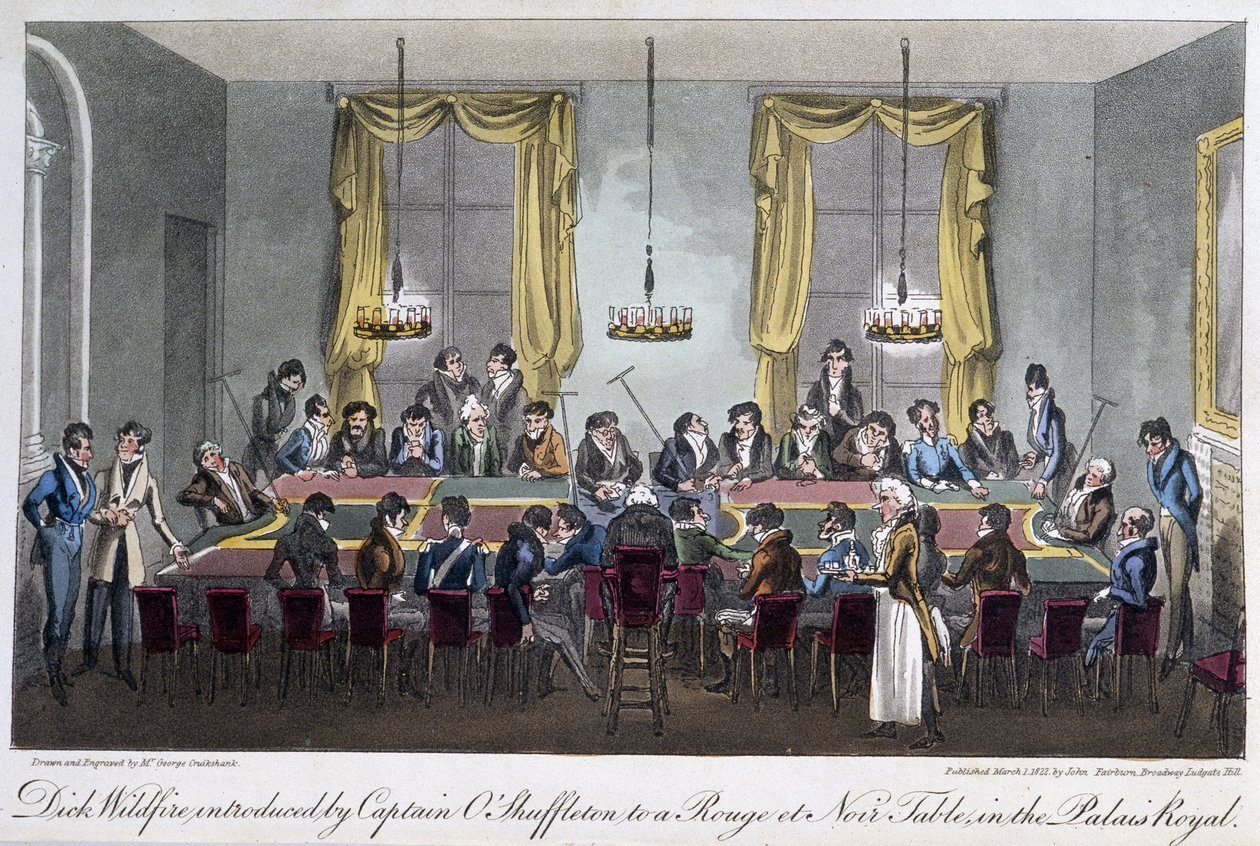 Drawn and Engraved by Mr. George Cruikshank.
Published March 1. 1822. by John Fairburn, Broadway Ludgate Hill.
Dick Wildfire, introduced by Captain O'Shuffleton to a Rouge et Noir Table, in the Palais Royal.